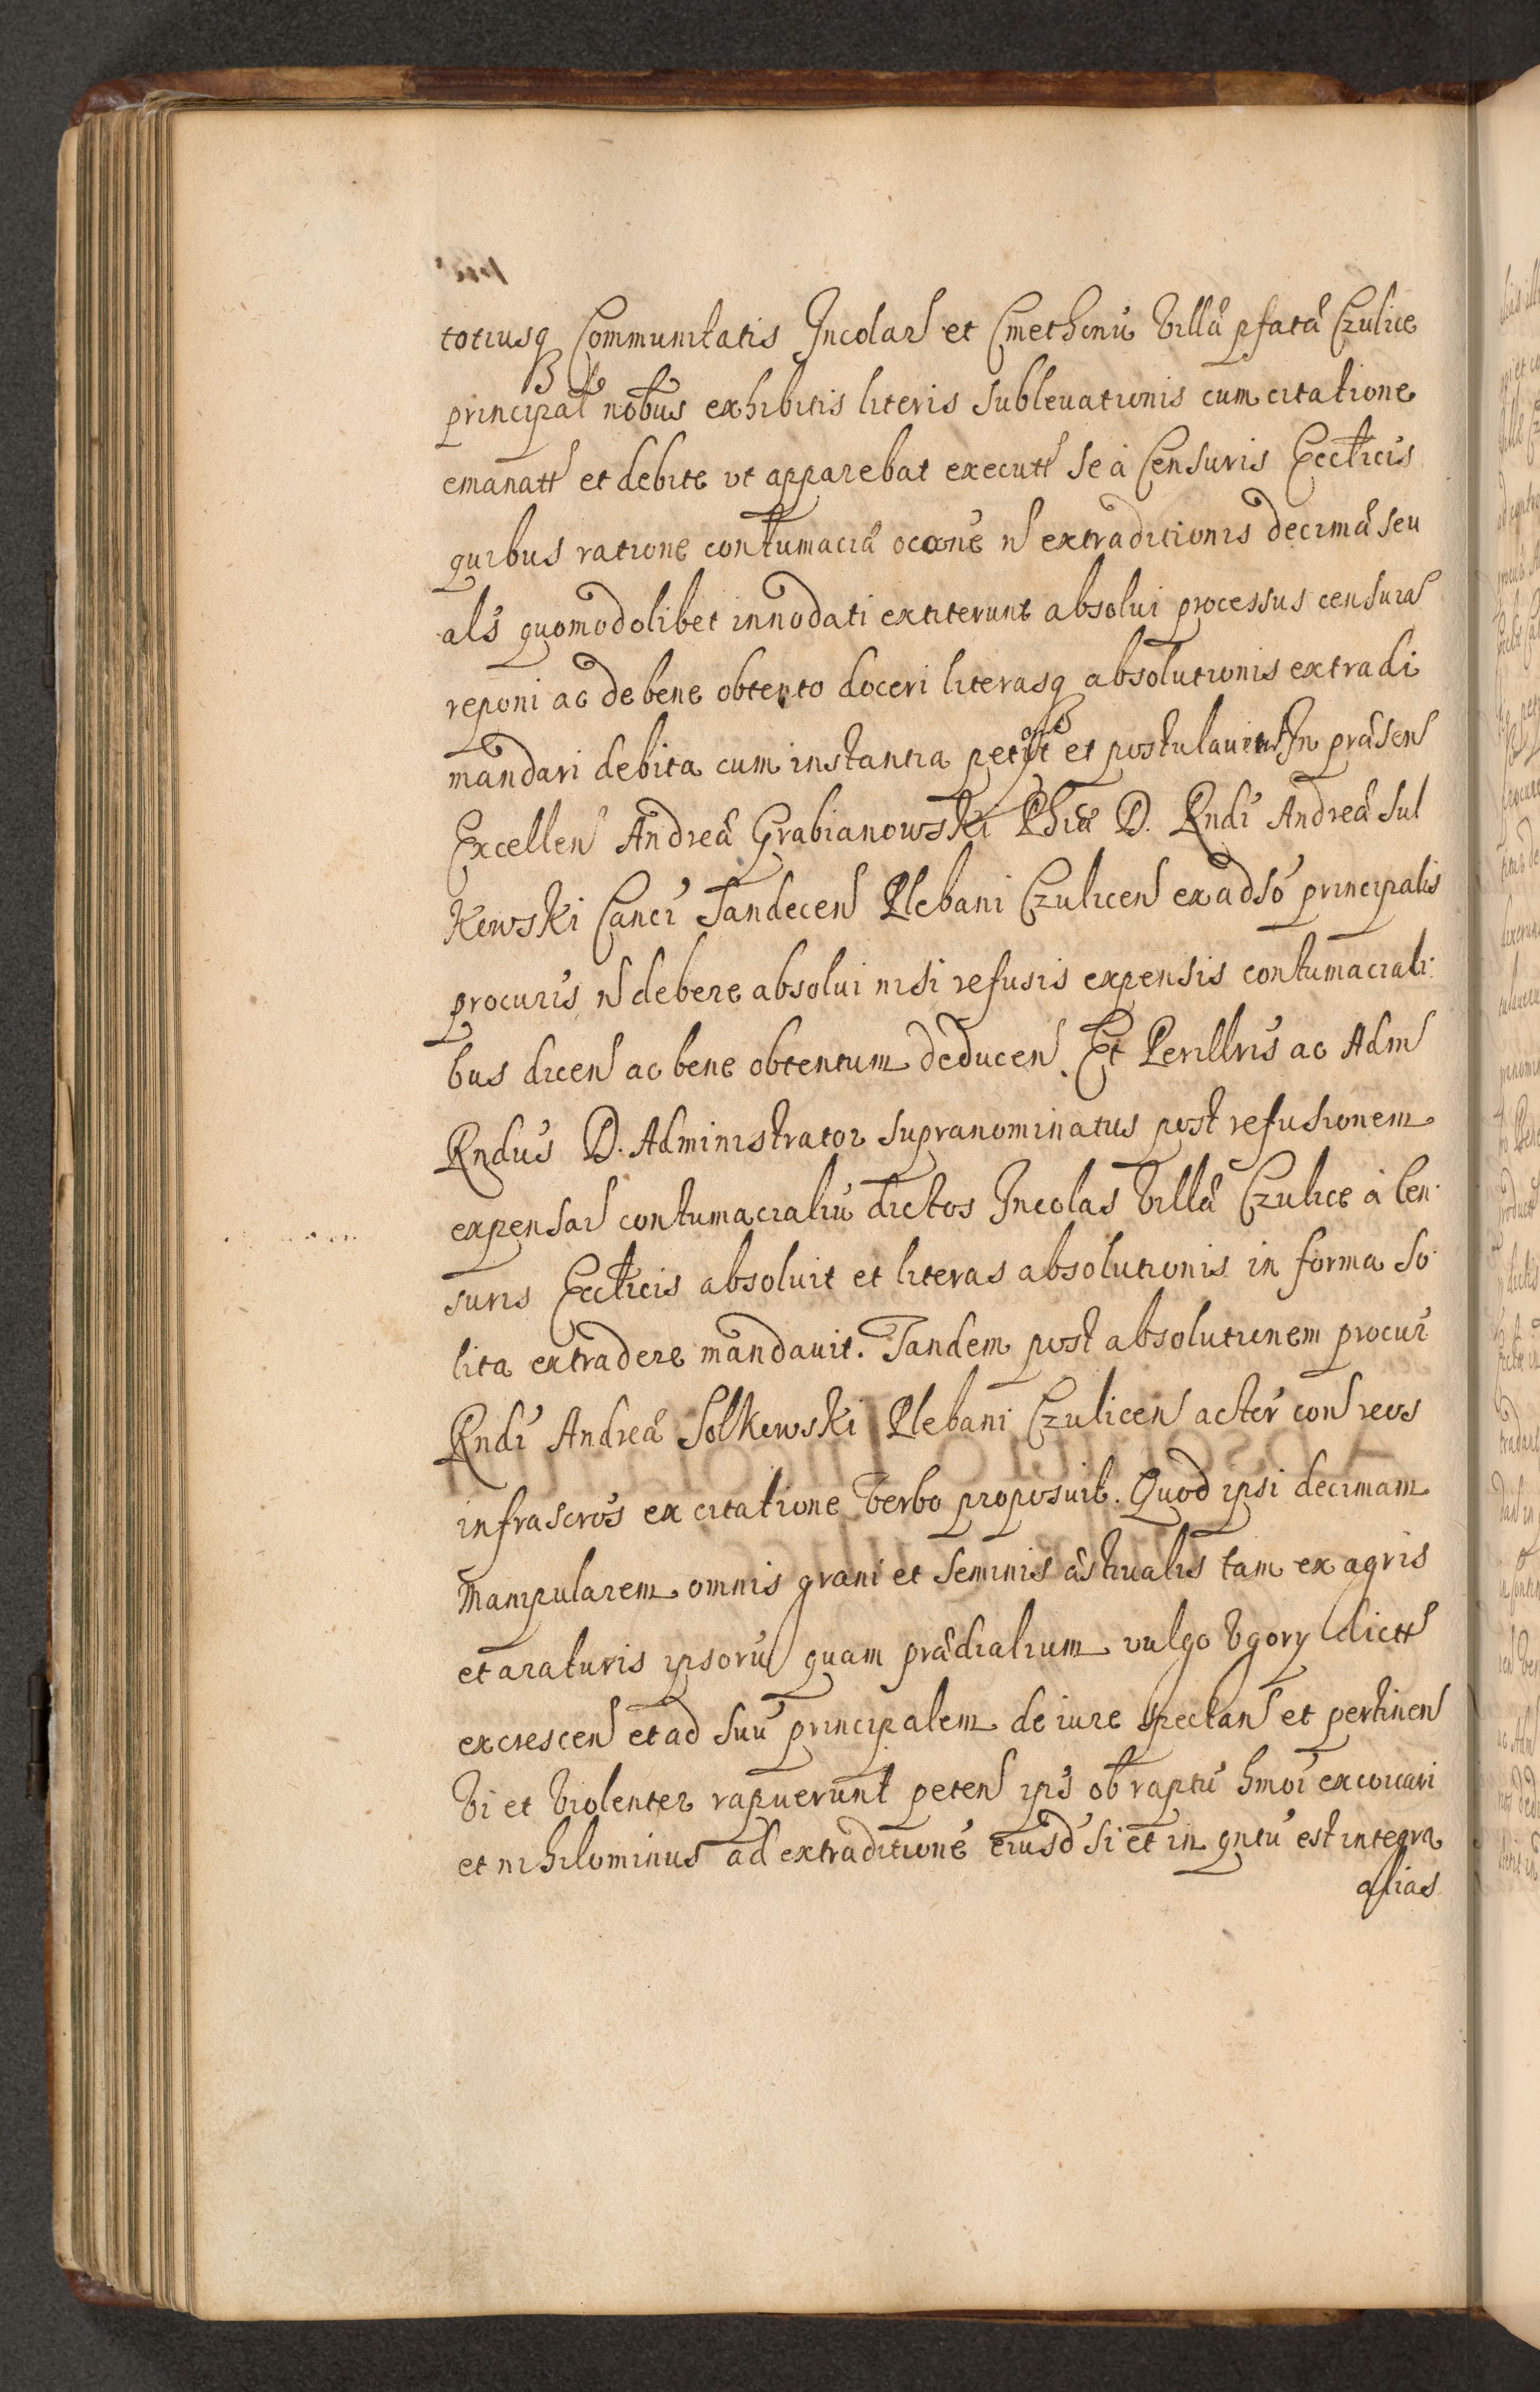 totiusq Communitatis Incolar et Cmethonū Villæ pfatæ Czulice
principal nobus exhibitis literis sublevationis cum citatione
emanatt et debite vt apparebat executt se à Censuris Ecclicis
quibus ratione contumaciæ ocone n extraditionis decimæ seu
als quomodolibet innodati extiterunt absolui processus censuras
reponi ac de bene obtento doceri literasq absolutionis extradi
mandari debita cum instantia petijt et postulauit In præsen
Excellen Andreæ Grabianowski Phiæ D. Rndi Andreæ Sul
kewski Canci Sandecen Plebani Czulicen ex adso principalis
procuris n debere absolui nisi refusis expensis contumaciali:
bus dicen ac bene obtentum deducen. Et Perillris ac Adm
Rndus D. Administrator supranominatus post refusionem
expensar contumacialiū dictos Incolas Villæ Czulice à Cen:
suris Ecclicis absoluit et literas absolutionis in forma so:
lita extradere mandauit. Tandem post absolutionem procur
Rndi Andreæ Solkewski Plebani Czulicen acter con reos
infrascros ex citatione verbo proposuit. Quod ipsi decimam
manipularem omnis grani et seminis æstivalis tam ex agris
et araturis ipsorū quam prædialium vulgo Vgory dictt
excrescen et ad suū principalem de iure spectan et pertinen
Vi et violenter rapuerunt peten ips ob raptū hmoi excoicari
et nihilominus ad extraditionē eiusd si et in qntū est integra
alias